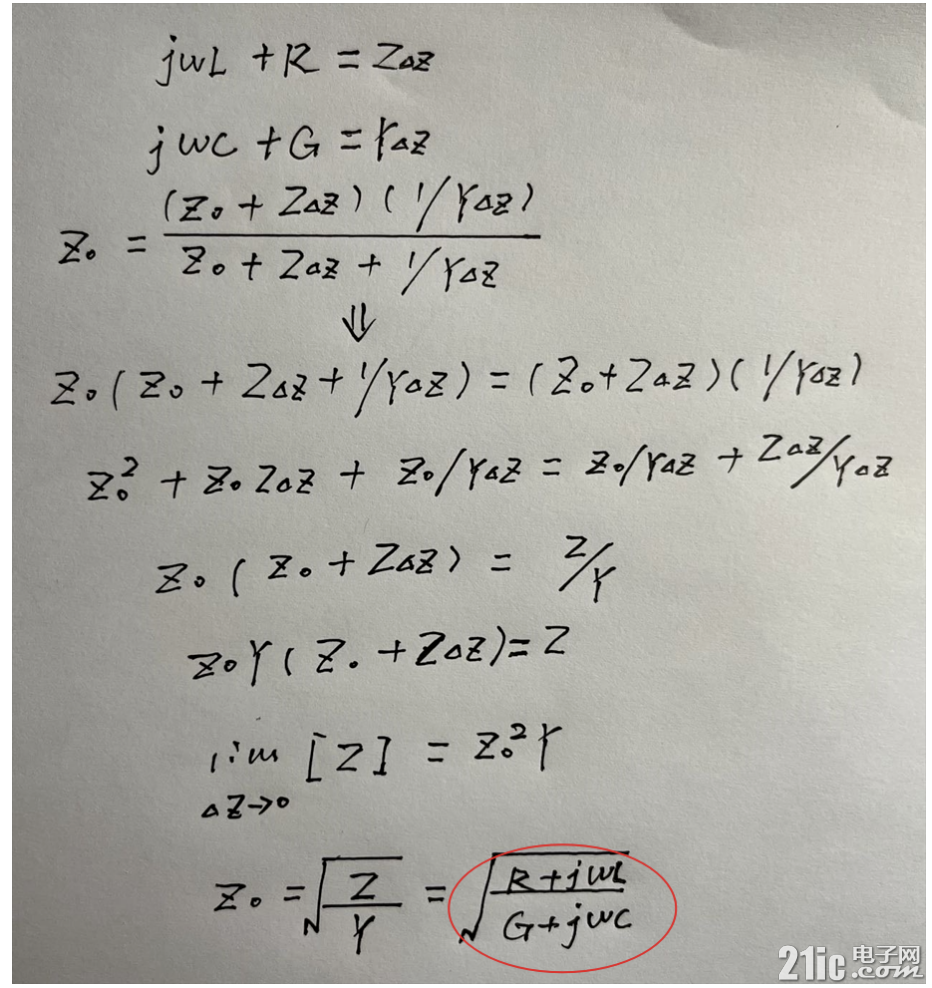 jwL + R = Z△z
jwc + G = Y△z
Z₀ = (Z₀ + Z△z)(1/Y△z) / Z₀ + Z△z + 1/Y△z
⇓
Z₀(Z₀ + Z△z + 1/Y△z) = (Z₀ + Z△z)(1/Y△z)
Z₀² + Z₀Z△z + Z₀/Y△z = Z₀/Y△z + Z△z/Y△z
Z₀(Z₀ + Z△z) = Z/Y
Z₀Y(Z₀ + Z△z) = Z
lim [Z] = Z₀²Y
△Z→0
Z₀ = √(Z/Y) = √(R+jwL/G+jwc)
21ic电子网
.com